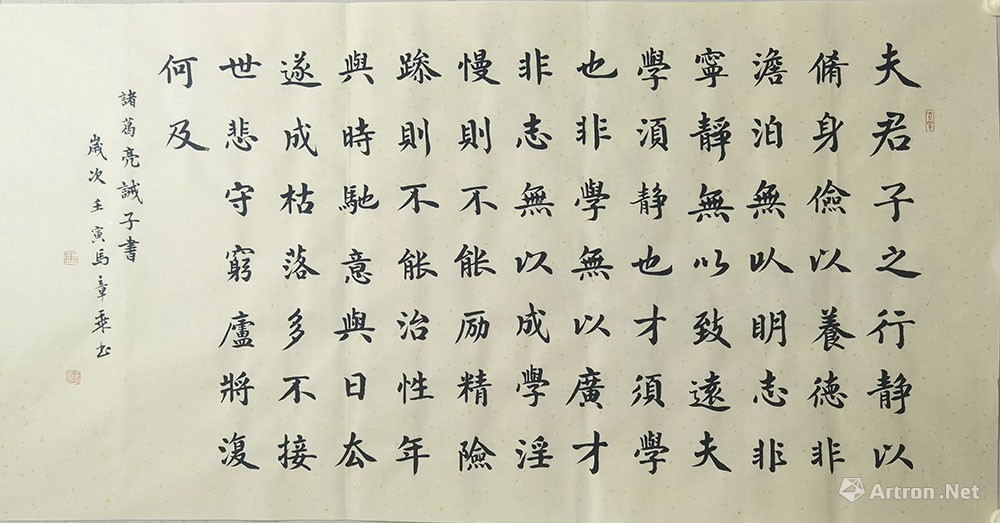 夫君子之行静以
脩身儉以養德非
澹泊無以明志非
寧靜無以致遠夫
學須静也才須學
也非學無以廣才
非志無以成學淫
慢則不能励精險
躁則不能治性年
與時馳意與日去
遂成枯落多不接
世悲守窮廬將復
何及
諸葛亮誡子書
歲次壬寅馬章乘书
Artron.Net